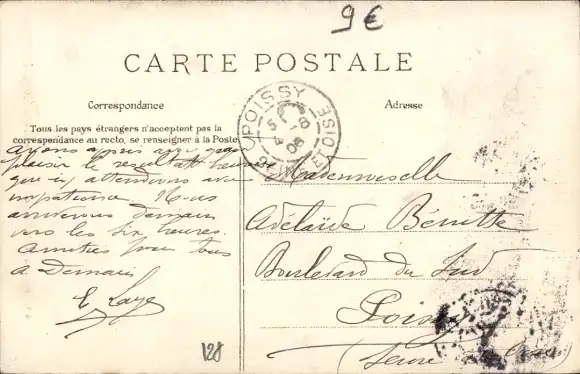 9€
CARTE POSTALE
Correspondance
Adresse
Tous les pays étrangers n'acceptent pas la
correspondance au recto, se renseigner à la Poste
POISSY
OISE
5
4 -8
06
avons appris avec
plaisir le
que attendions avec
impatience Nous
arriverons demain
vers les six heures.
Amitiés pour tous
a Demain
Mademoiselle
Adélaïde
Boulevard du Sud
Poissy
(Seine
128